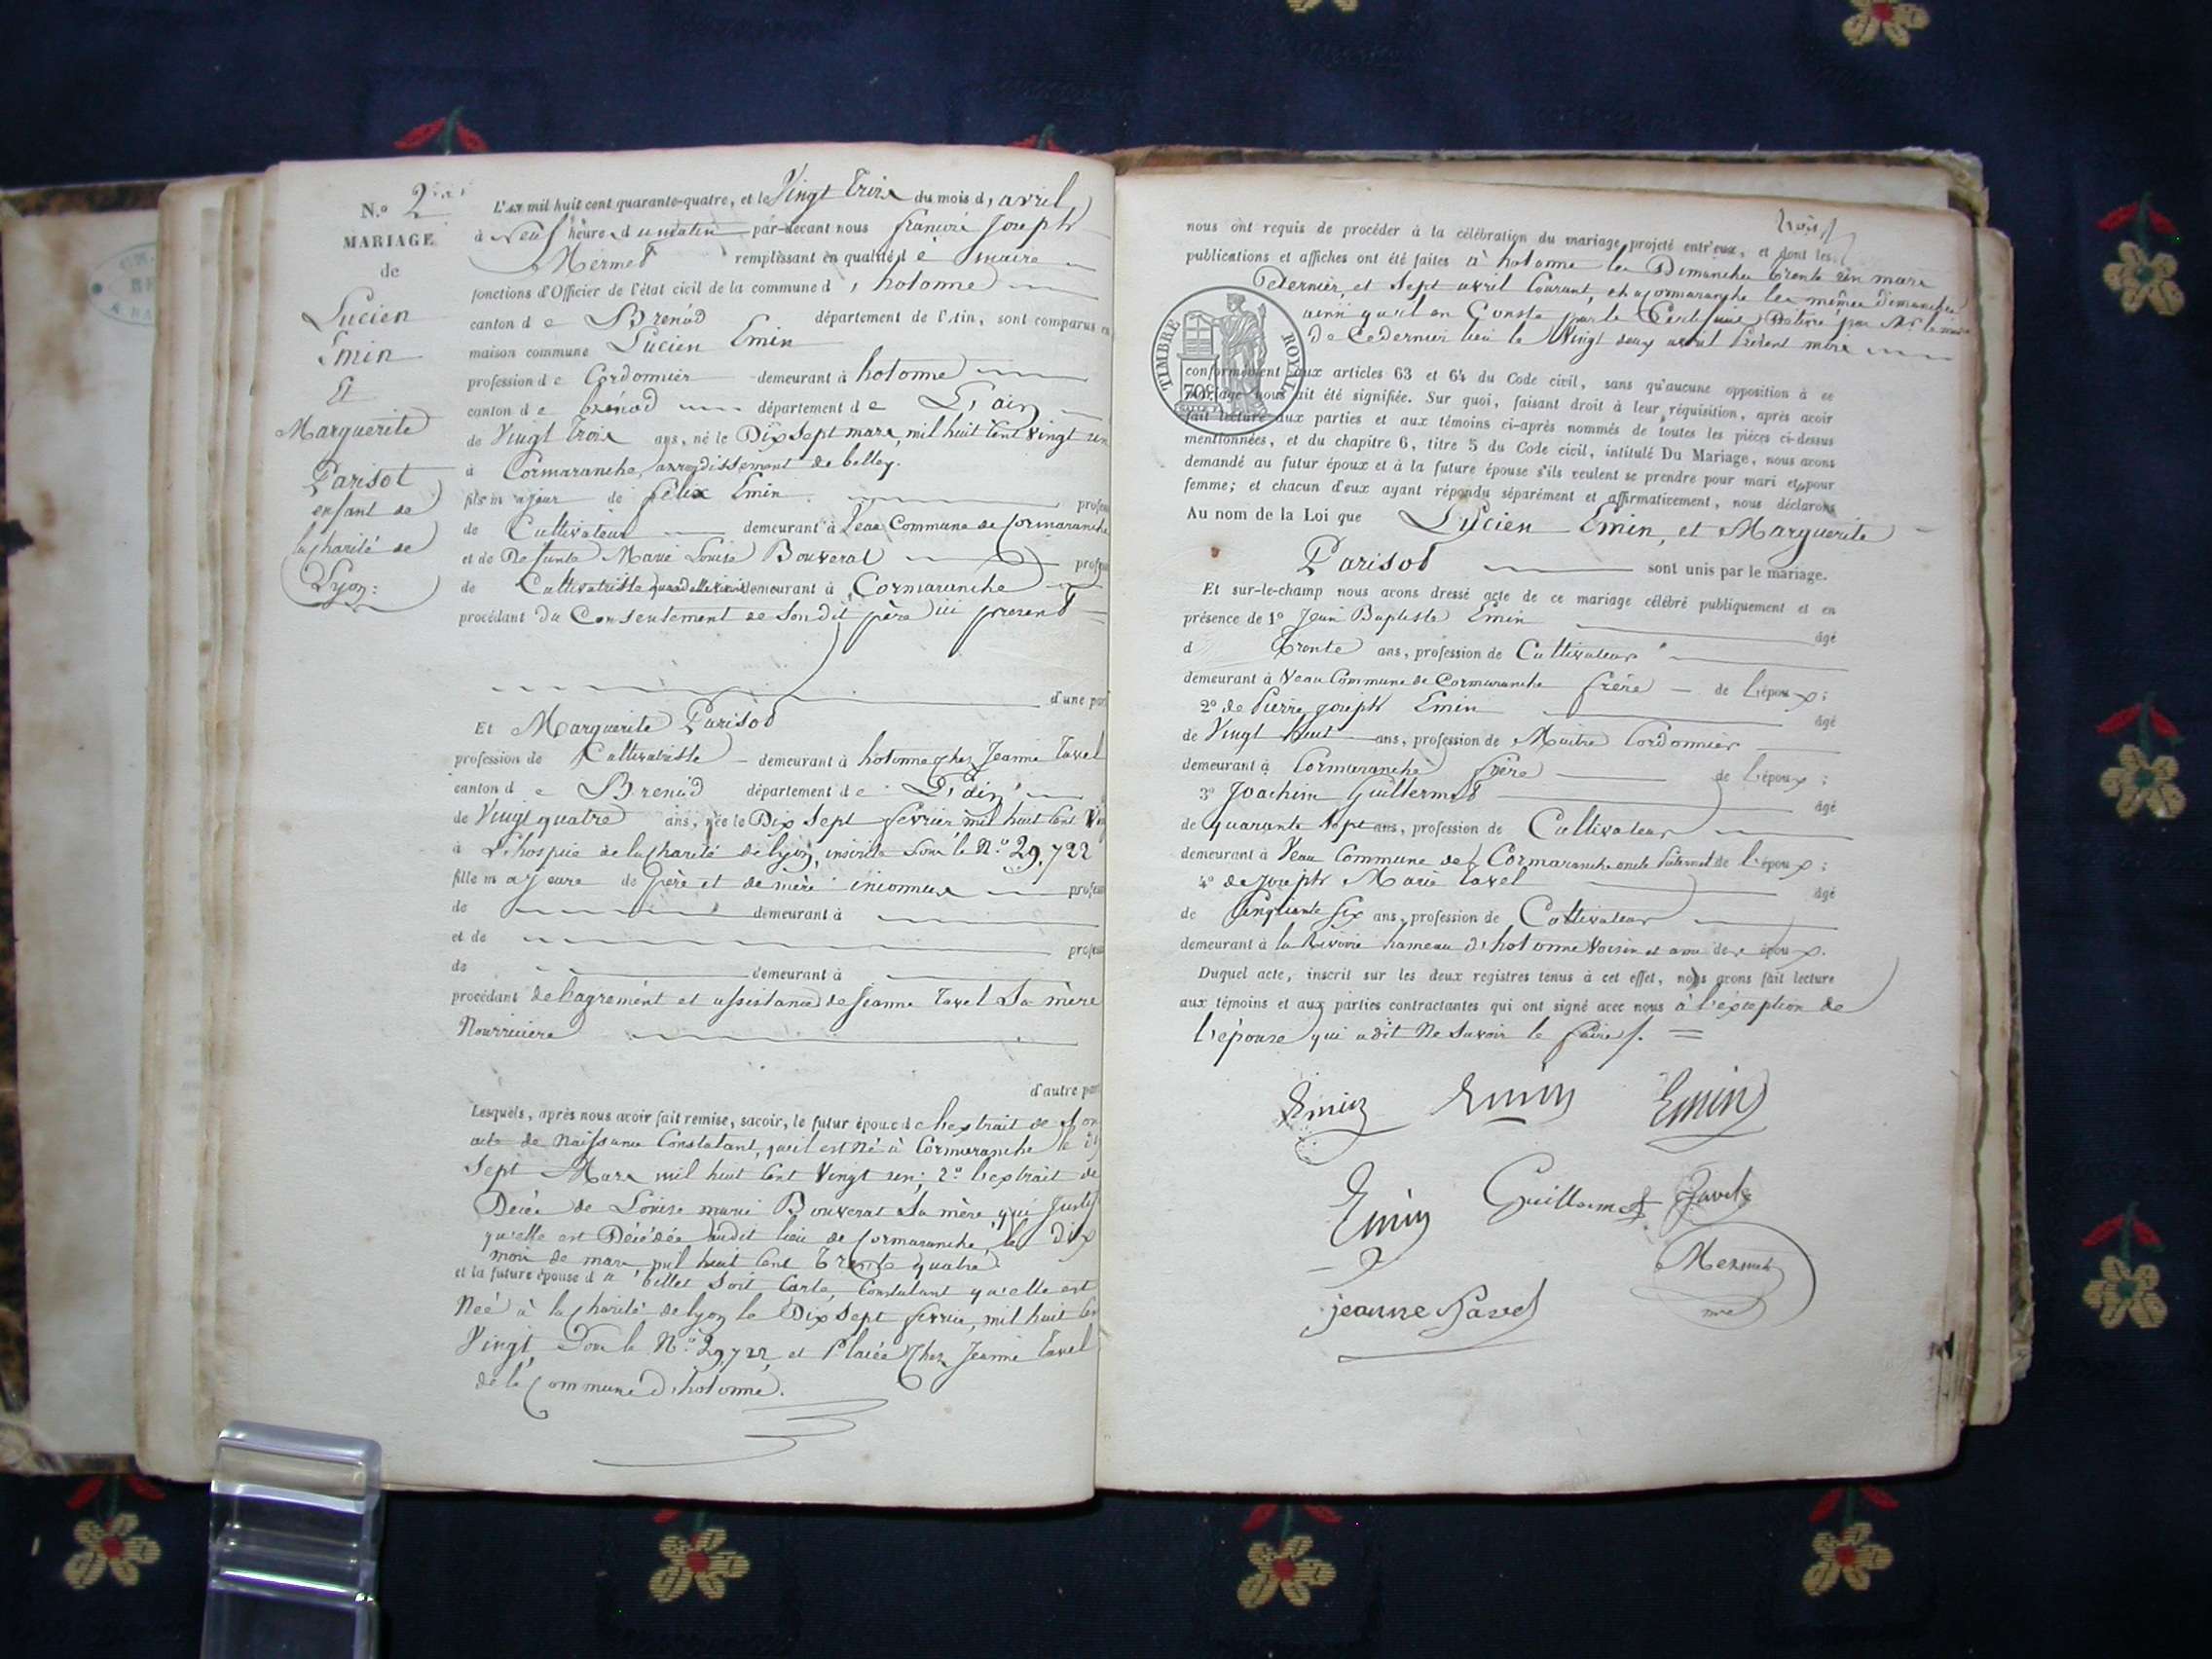 N.º 2
MARIAGE
de
Lucien
Emin
Et
Marguerite
Parisot
enfant de
la charité de
Lyon:
L'an mil huit cent quarante-quatre, et le Vingt Trois du mois d'avril
à Neuf heures du matin par-devant nous francois Joseph
Mermet remplissant en qualité de maire
fonctions d'Officier de l'état civil de la commune d'hotonne
canton de Brenod département de l'Ain, sont comparus en
maison commune Lucien Emin
profession de Cordonnier demeurant à hotonne
canton de brénod département de L'ain
de Vingt Trois ans, né le Dix sept mars, mil huit Cent Vingt un
à Cormaranche, arrondissement de belley.
fils majeur de félix Emin profess
de Cultivateur demeurant à Veau Commune de Cormaranche
et de Defunte Marie Louise Bouverat profess
de Cultivatrisse quand elle vivait demeurant à Cormaranche
procédant du Consentement de Son dit père ici present
d'une part
Et Marguerite Parisot
profession de Cultivatrisse demeurant à hotonne chez Jeanne Tavel
canton de Brenod département de L'ain
de Vingt quatre ans, née le Dix Sept fevrier mil huit Cent Vin
à L'hospice de la charité de lyon, inscrite sous le N.º 29,722
fille majeure de père et de mère inconnus profess
de demeurant à
et de profess
de demeurant à
procédant de l'agrément et assistance de Jeanne Tavel Sa mère
Nourricière
d'autre part
Lesquels, après nous avoir fait remise, savoir, le futur époux de l'extrait de Son
acte de Naissance Constatant, qu'il est Né à Cormaranche le dix
Sept Mars mil huit Cent Vingt un; 2.º l'extrait de
Décès de Louise marie Bouverat Sa mère, qui Justif
qu'elle est Décédée audit lieu de Cormaranche, le Dix
mois de mars mil huit Cent Trente quatre.
et la future épouse d'u billet Soit Carte, Constatant qu'elle est
Neé à la charité de lyon le Dix Sept fevrier, mil huit Cen
Vingt, Sous le N.º 29,722, et Placée Chez Jeanne Tavel
de la Commune d'hotonne.
trois
nous ont requis de procéder à la célébration du mariage projeté entr'eux, et dont les
publications et affiches ont été faites à hotonne les Dimanches trente un mars
Dernier, et Sept avril Courant, et a cormaranche les mêmes dimanches
ainsi qu'il en Conste par le Certificat Délivré par Mr le maire
de Ce dernier lieu le Vingt deux avril Présent mois
TIMBRE ROYAL
70c
conformément aux articles 63 et 64 du Code civil, sans qu'aucune opposition à ce
mariage nous ait été signifiée. Sur quoi, faisant droit à leur réquisition, après avoir
fait lecture aux parties et aux témoins ci-après nommés de toutes les pièces ci-dessus
mentionnées, et du chapitre 6, titre 5 du Code civil, intitulé Du Mariage, nous avons
demandé au futur époux et à la future épouse s'ils veulent se prendre pour mari et pour
femme; et chacun d'eux ayant répondu séparément et affirmativement, nous déclarons
Au nom de la Loi que Lucien Emin, et Marguerite
Parisot sont unis par le mariage.
Et sur-le-champ nous avons dressé acte de ce mariage célébré publiquement et en
présence de 1º Jean Baptiste Emin âgé
d Trente ans, profession de Cultivateur
demeurant à Veau Commune de Cormaranche frère de l'époux;
2º de Pierre Joseph Emin âgé
de Vingt huit ans, profession de Maitre Cordonnier
demeurant à Cormaranche frère de l'époux;
3º Joachim Guillermet âgé
de quarante Sept ans, profession de Cultivateur
demeurant à Veau Commune de Cormaranche oncle Paternel de l'époux;
4º de Joseph Marie tavel âgé
de Cinquante Six ans, profession de Cultivateur
demeurant à la Rivoire hameau d'hotonne Voisin et ami des époux.
Duquel acte, inscrit sur les deux registres tenus à cet effet, nous avons fait lecture
aux témoins et aux parties contractantes qui ont signé avec nous à l'éxception de
l'épouse qui a dit Ne Savoir le faire.
Emin Emin Emin
Emin Guillermet Tavel
Mermet
mre
jeanne Tavel